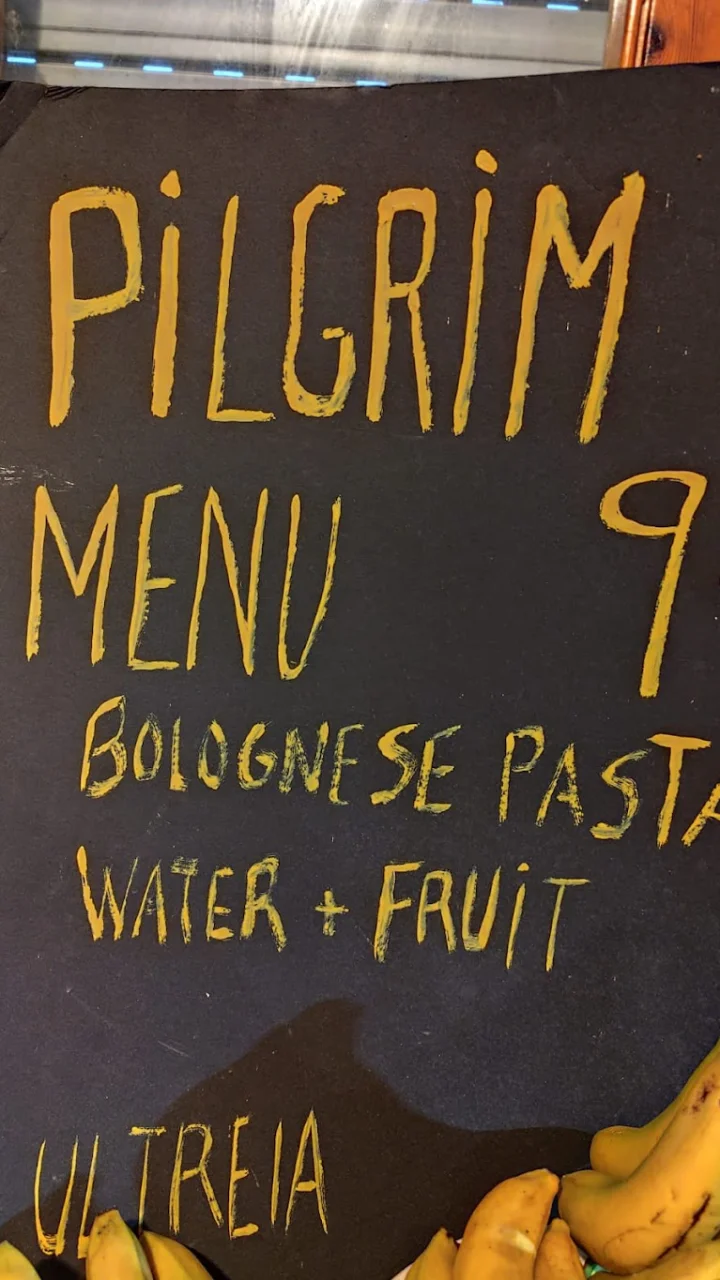 PiLGRiM
MENU 9
BOLOGNESE PASTA
WATER + FRUiT
ULTREIA